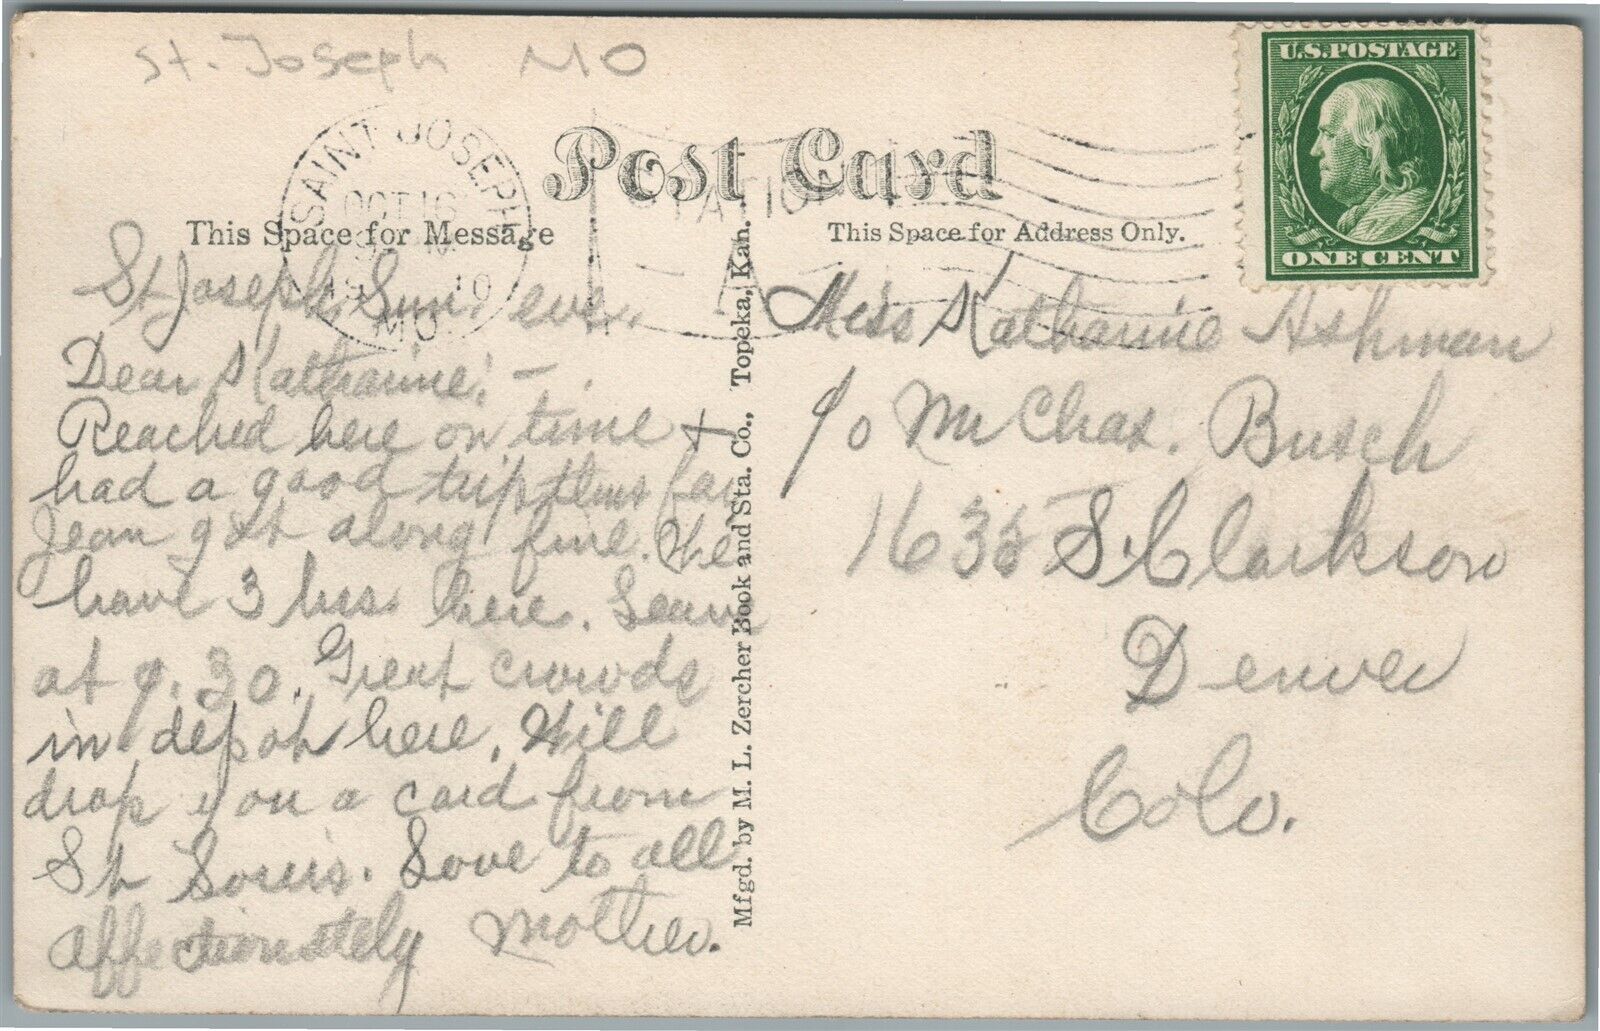 St. Joseph MO
SAINT JOSEPH
OCT 16
10
MO.
STATION
A
U.S. POSTAGE
ONE CENT
Post Card
This Space for Message
This Space for Address Only.
St Joseph, Sun. eve.
Dear Katharine: –
Reached here on time +
had a good trip thus far
Jean got along fine. We
have 3 hrs. here. Leave
at 9.30. Great crowds
in depot here. Will
drop you a card from
St Louis. Love to all
Affectionately Mother.
Mfgd. by M. L. Zercher Book and Sta. Co., Topeka, Kan.
Miss Katharine Ashman
c/o Mr Chas. Busch
1635 S. Clarkson
Denver
Colo.